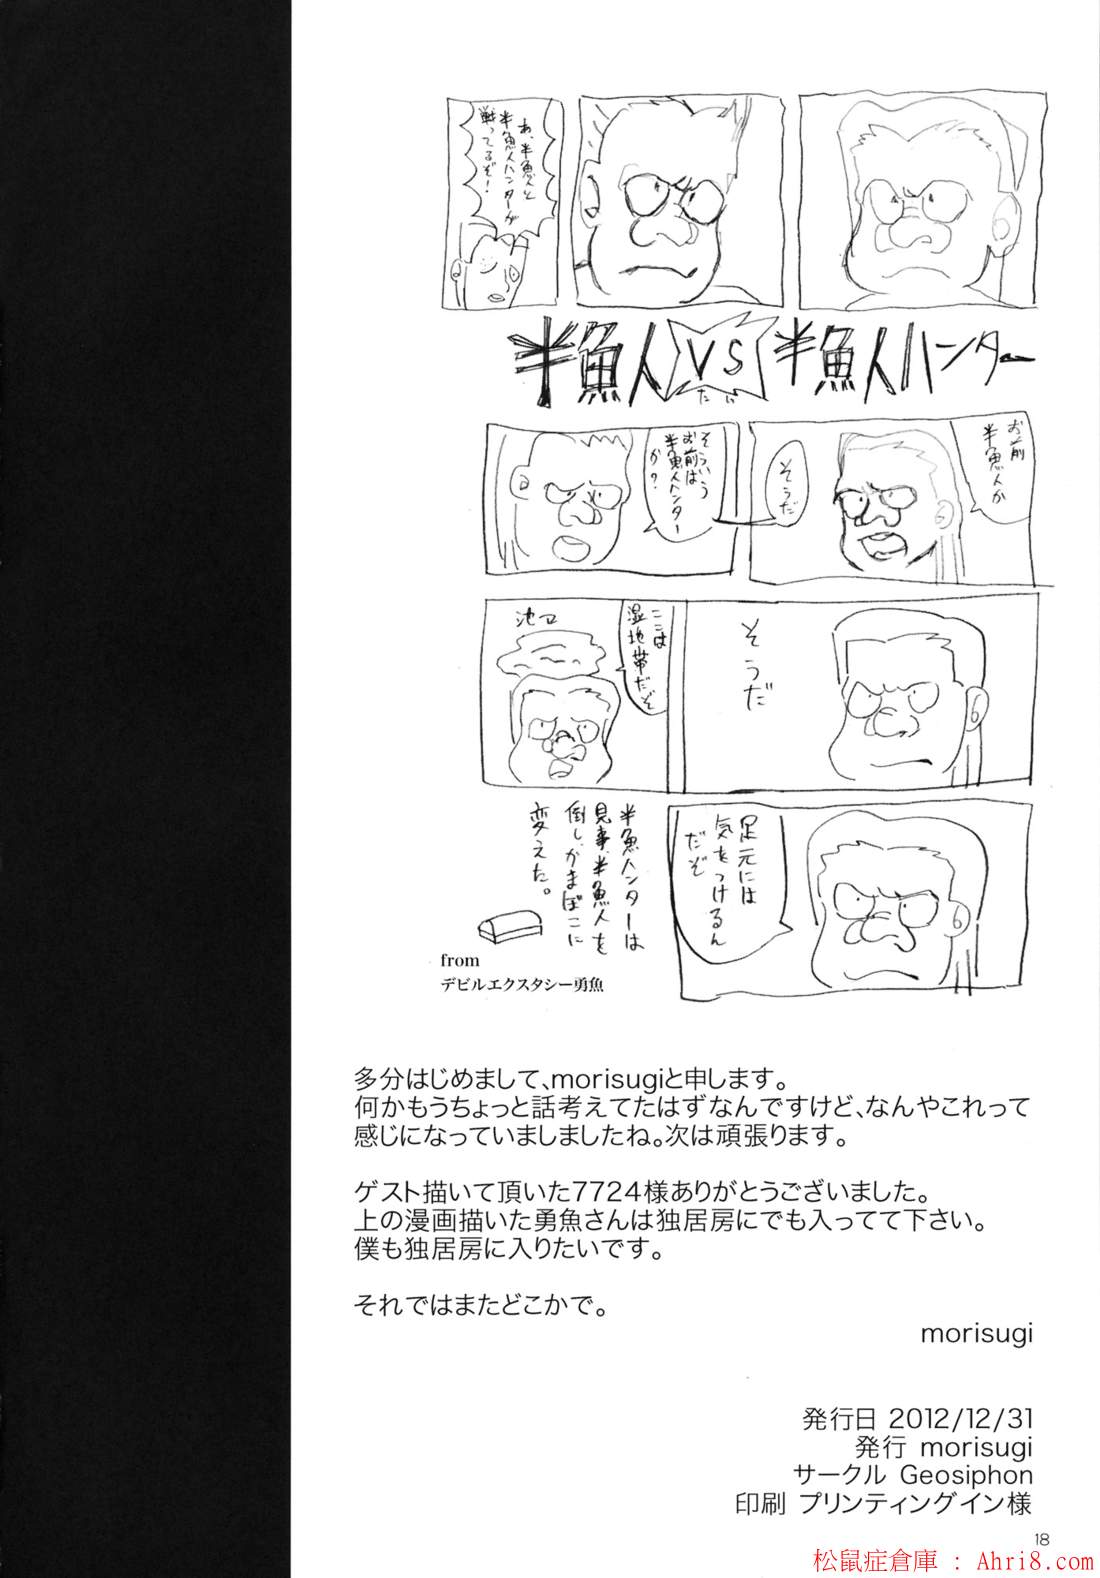 あ、半魚人と
半魚人ハンターが
戦ってるぞ!
半魚人VS半魚人ハンター
お前
半魚人か
そうだ
そういう
お前は
半魚人ハンター
か?
そうだ
ここは
湿地帯だぞ
足元には
気をつけるん
だぞ
半魚ハンターは
見事、半魚人を
倒し、かまぼこに
変えた。
from
デビルエクスタシー勇魚
多分はじめまして、morisugiと申します。
何かもうちょっと話考えてたはずなんですけど、なんやこれって
感じになっていましましたね。次は頑張ります。
ゲスト描いて頂いた7724様ありがとうございました。
上の漫画描いた勇魚さんは独居房にでも入ってて下さい。
僕も独居房に入りたいです。
それではまたどこかで。
morisugi
発行日 2012/12/31
発行 morisugi
サークル Geosiphon
印刷 プリンティングイン様
18
松鼠症倉庫 : Ahri8.com